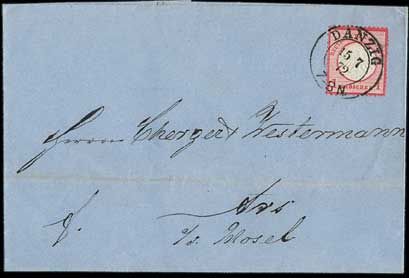 DANZIG
15 7
72
7-8 N.
Herrn Chergert Westermann
d.
Ars
a/d. Mosel